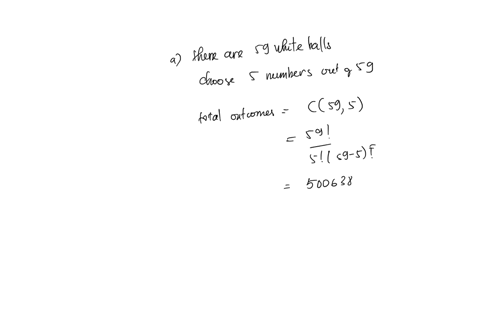 a) there are 59 white balls
choose 5 numbers out of 59
total outcomes = C(59,5)
= 59!
5!(59-5)!
= 500638